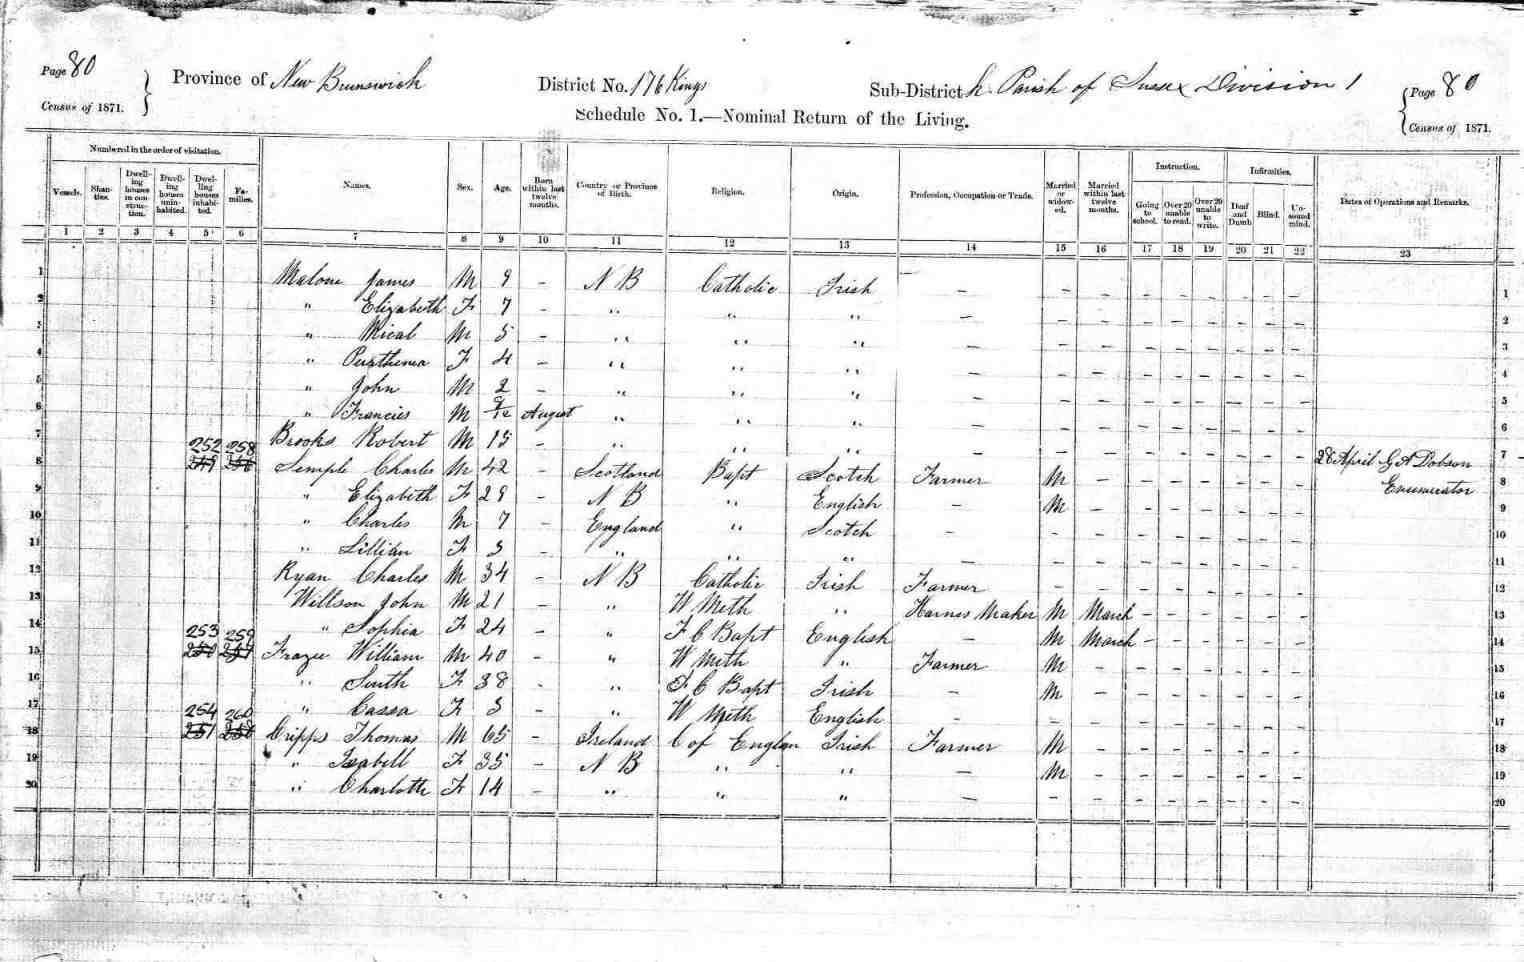 Page 80 Province of New Brunswick District No. 176 Kings Sub-District h. Parish of Sussex Division 1 Page 80
Census of 1871. Schedule No. 1.—Nominal Return of the Living. Census of 1871.
Numbered in the order of visitation. Instruction. Infirmities.
Vessels. Shanties. Dwelling houses in construction. Dwelling houses uninhabited. Dwelling houses inhabited. Families. Names. Sex. Age. Born within last twelve months. Country or Province of Birth. Religion. Origin. Profession, Occupation or Trade. Married or widowed. Married within last twelve months. Going to school. Over 20 unable to read. Over 20 unable to write. Deaf and Dumb Blind. Unsound mind. Dates of Operations and Remarks.
1 2 3 4 5 6 7 8 9 10 11 12 13 14 15 16 17 18 19 20 21 22 23
1 Malone James M 9 - N B Catholic Irish - - - - - - - - - 1
2 " Elizabeth F 7 - " " " - - - - - - - - - 2
3 " Mical M 5 - " " " - - - - - - - - - 3
4 " Parthenia F 4 - " " " - - - - - - - - - 4
5 " John M 2 - " " " - - - - - - - - - 5
6 " Francies M 9/12 August " " " - - - - - - - - - 6
7 Brooks Robert M 15 - " " " - - - - - - - - - 7
252 258
8 249 256 Semple Charles M 42 - Scotland Bapt Scotch Farmer M - - - - - - - 28 April G A Dobson 8
9 " Elizabeth F 29 - N B " English - M - - - - - - - Enumerator 9
10 " Charles M 7 - England " Scotch - - - - - - - - - 10
11 " Lillian F 3 - " " " - - - - - - - - - 11
12 Ryan Charles M 34 - N B Catholic Irish Farmer - - - - - - - - 12
13 Willson John M 21 - " W Meth " Harnes Maker M March - - - - - - 13
14 " Sophia F 24 - " F C Bapt English - M March - - - - - - 14
253 259
15 250 257 Frazee William M 40 - " W Meth " Farmer M - - - - - - - 15
16 " Smith F 38 - " F C Bapt Irish - M - - - - - - - 16
17 " Cassa F 3 - " W Meth English - - - - - - - - - 17
254 260
18 251 258 Cripps Thomas M 65 - Ireland C of Englan Irish Farmer M - - - - - - - 18
19 " Isabell F 35 - N B " " - M - - - - - - - 19
20 " Charlotte F 14 - " " " - - - - - - - - - 20